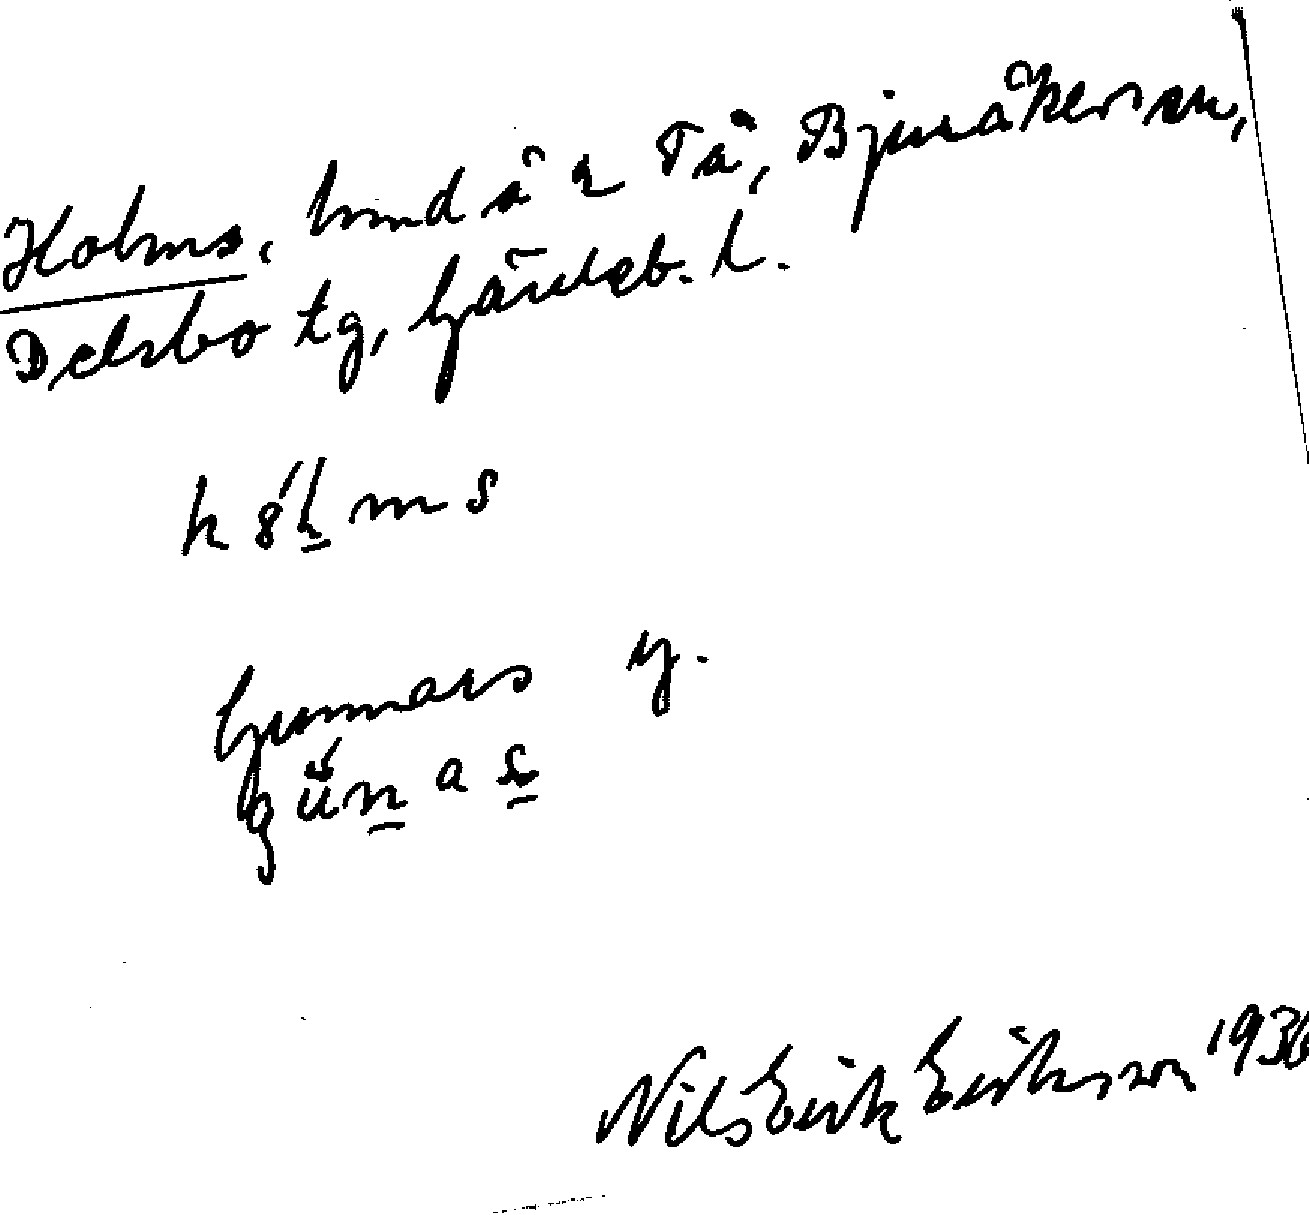 Holms, hmd å 2 Tå, Bjuråkers sn,
Delsbo tg, Gävleb. l.
hol̲ms
Gunnars g.
gün̲as̲
Nils Erik Eriksson 1936